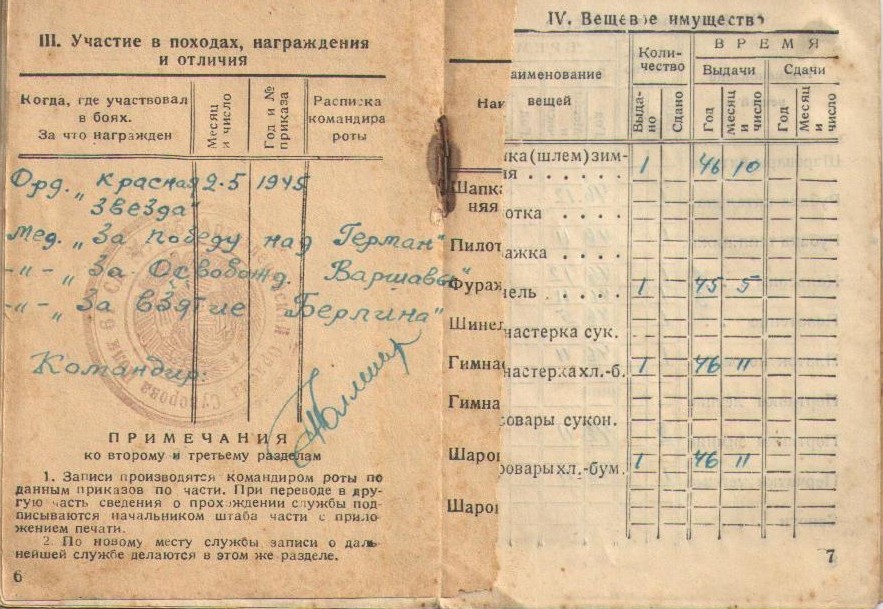 III. Участие в походах, награждения
и отличия
Когда, где участвовал
в боях.
За что награжден
Месяц
и число
Год и №
приказа
Расписка
командира
роты
Орд. „Красная 2·5 1945
Звезда"
Мед. „За победу над Герман"
-"- „За Освобожд. Варшавы"
-"- „За взятие Берлина"
Командир:
ПРИМЕЧАНИЯ
ко второму и третьему разделам
1. Записи производятся командиром роты по
данным приказов по части. При переводе в дру-
гую часть сведения о прохождении службы под-
писываются начальником штаба части с прило-
жением печати.
2. По новому месту службы записи о даль-
нейшей службе делаются в этом же разделе.
6
IV. Вещевое имущество
Наи
аименование
вещей
Коли-
чество
ВРЕМЯ
Выдачи
Сдачи
Выда-
но
Сдано
Год
Месяц
и
число
Год
Месяц
и
число
ка(шлем)зим- 1 46 10
я . . . . . .
Шапк
няя
отка . . . .
Пилот
ажка . . . .
Фураж
ель . . . . 1 45 5
Шинел
настерка сук.
Гимнас
настерка хл.-б. 1 46 11
Гимна
овары сукон.
Шаров
ровары хл.-бум. 1 46 11
Шаров
7